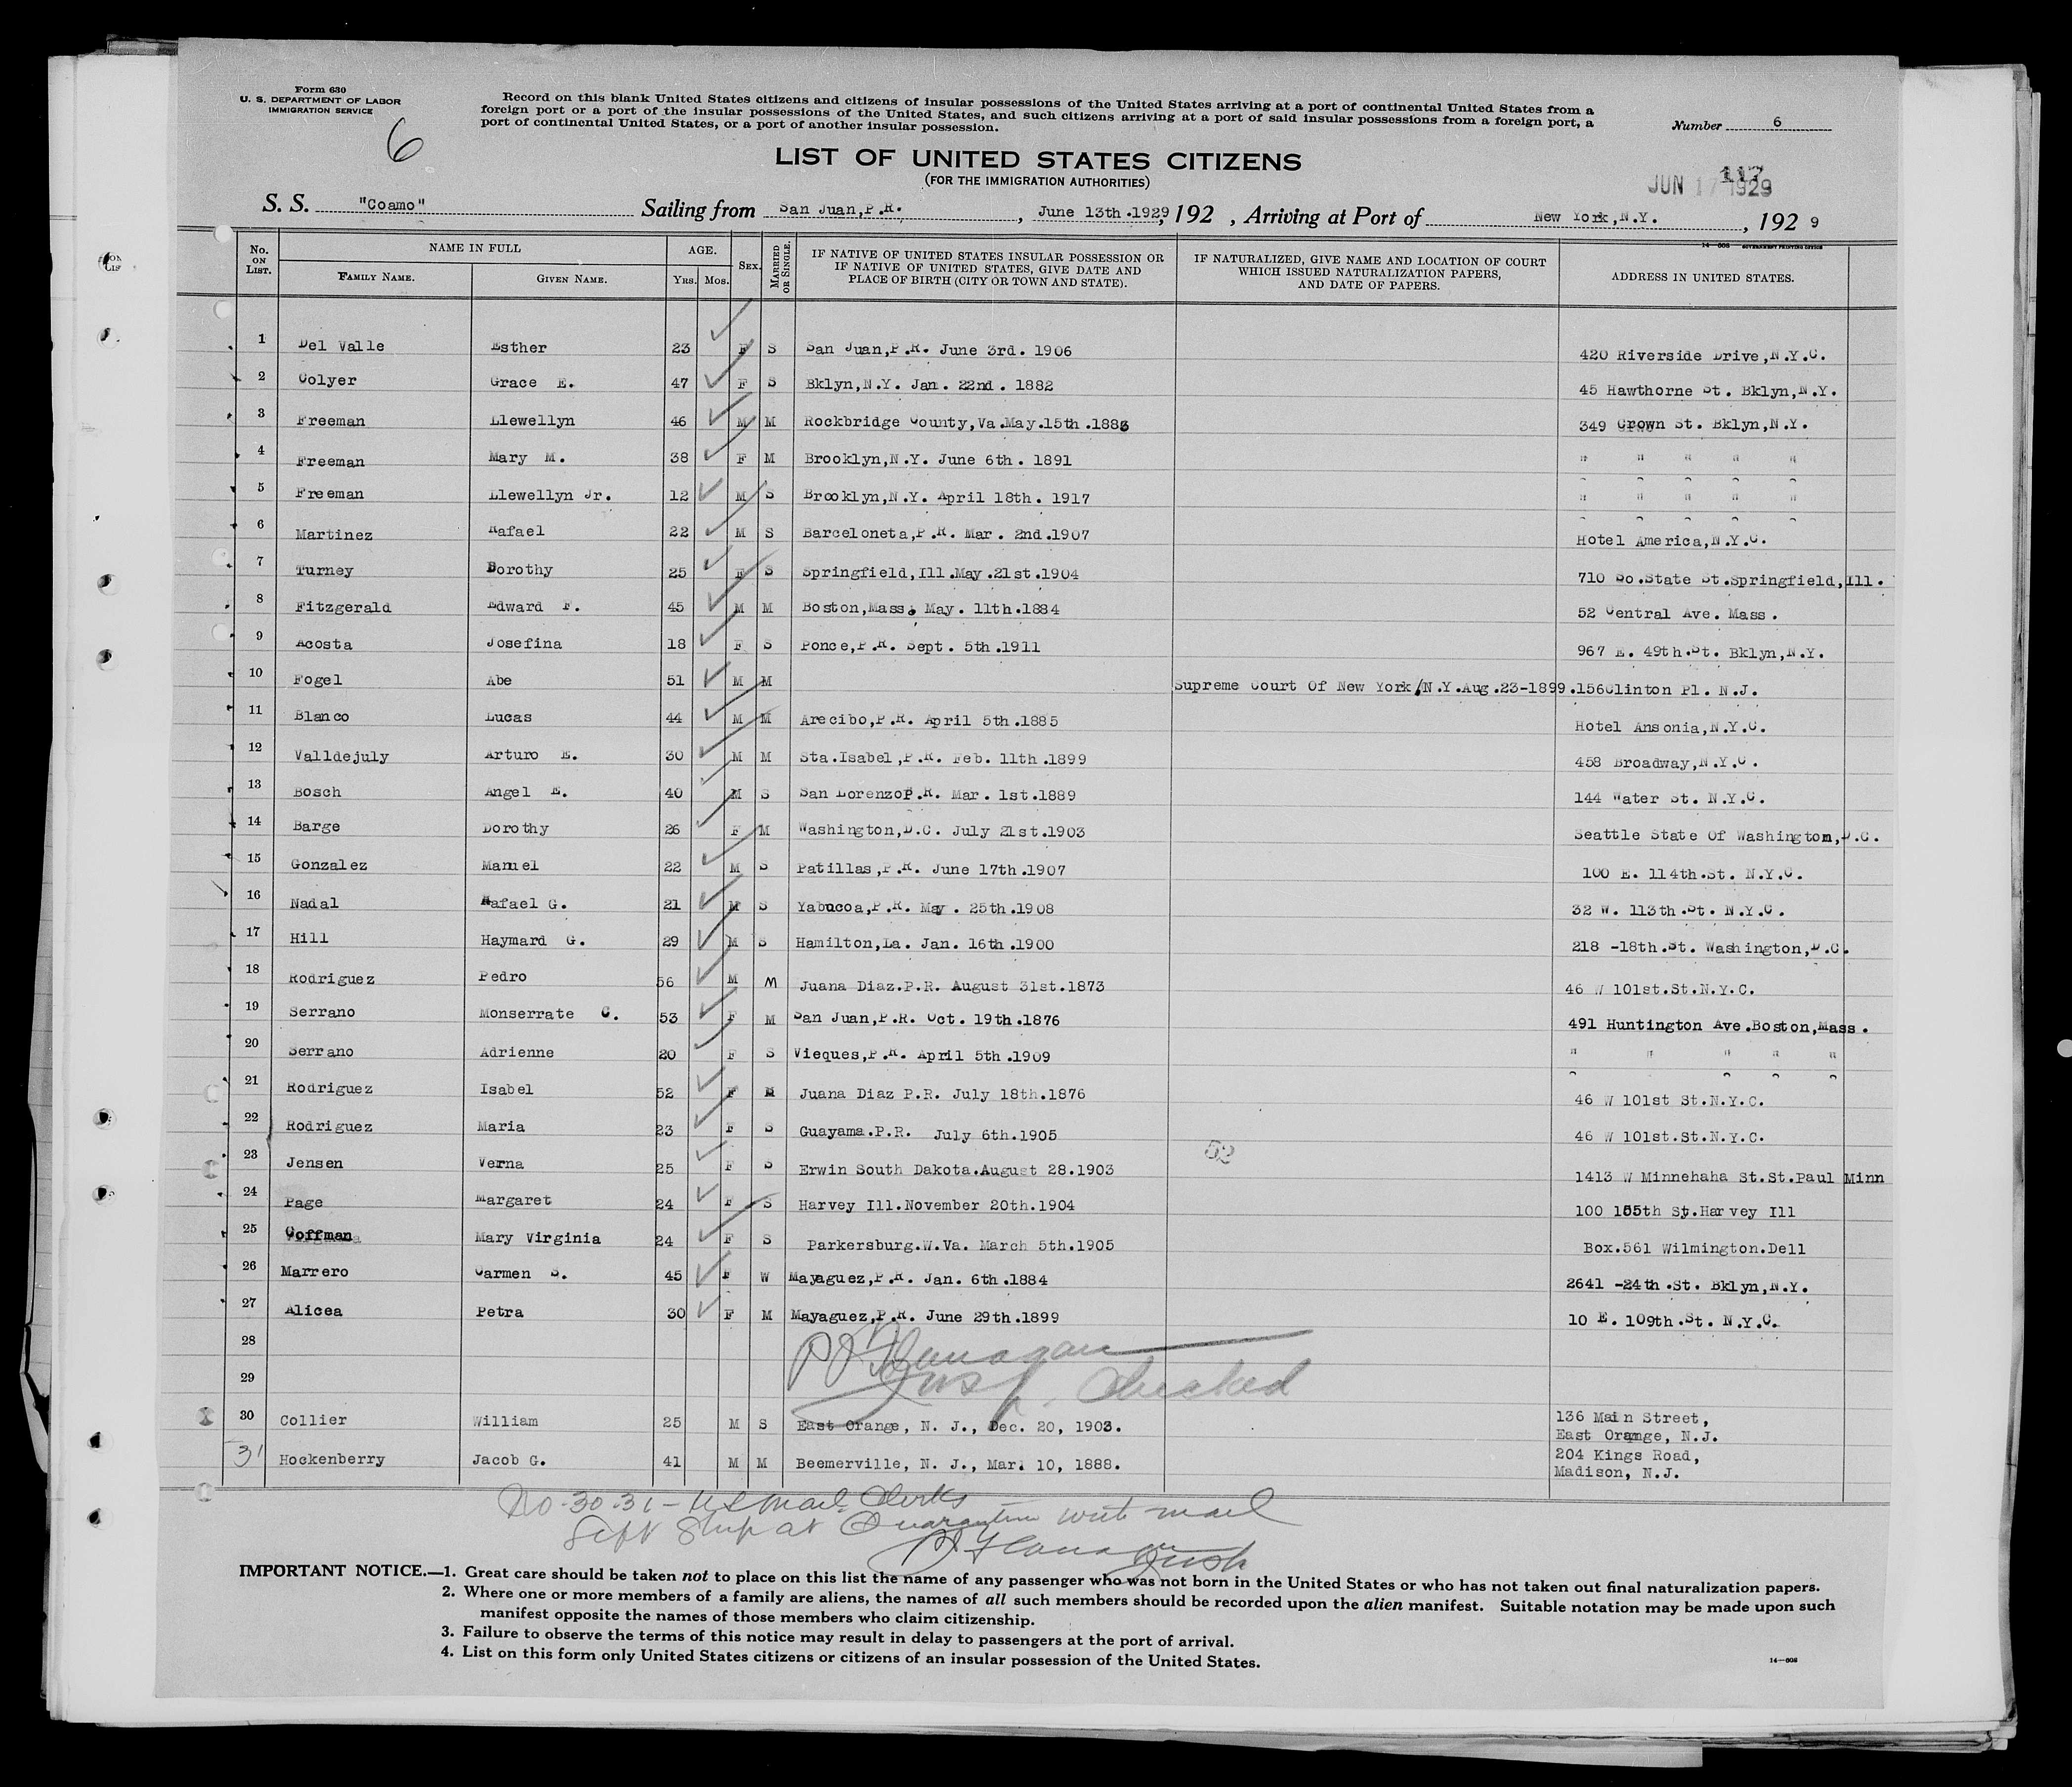 Form 630
U. S. DEPARTMENT OF LABOR
IMMIGRATION SERVICE
6
Record on this blank United States citizens and citizens of insular possessions of the United States arriving at a port of continental United States from a
foreign port or a port of the insular possessions of the United States, and such citizens arriving at a port of said insular possessions from a foreign port, a
port of continental United States, or a port of another insular possession.
Number 6
LIST OF UNITED STATES CITIZENS
(FOR THE IMMIGRATION AUTHORITIES)
117
JUN 17 1929
S. S. "Coamo" Sailing from San Juan,P.R. , June 13th.1929, 192 , Arriving at Port of New York,N.Y. , 192 9
14—608 GOVERNMENT PRINTING OFFICE
No. ON LIST. NAME IN FULL FAMILY NAME. GIVEN NAME. AGE. YRS. MOS. SEX. MARRIED OR SINGLE. IF NATIVE OF UNITED STATES INSULAR POSSESSION OR IF NATIVE OF UNITED STATES, GIVE DATE AND PLACE OF BIRTH (CITY OR TOWN AND STATE). IF NATURALIZED, GIVE NAME AND LOCATION OF COURT WHICH ISSUED NATURALIZATION PAPERS, AND DATE OF PAPERS. ADDRESS IN UNITED STATES.
1 Del Valle Esther 23 F S San Juan,P.R. June 3rd. 1906 420 Riverside Drive,N.Y.C.
2 Colyer Grace E. 47 F S Bklyn,N.Y. Jan. 22nd. 1882 45 Hawthorne St. Bklyn,N.Y.
3 Freeman Llewellyn 46 M M Rockbridge County,Va.May.15th.1883 349 Crown St. Bklyn,N.Y.
4 Freeman Mary M. 38 F M Brooklyn,N.Y. June 6th. 1891 " " " " "
5 Freeman Llewellyn Jr. 12 M S Brooklyn,N.Y. April 18th. 1917 " " " " "
6 Martinez Rafael 22 M S Barceloneta,P.R. Mar. 2nd.1907 Hotel America,N.Y.C.
7 Turney Dorothy 25 F S Springfield,Ill.May.21st.1904 710 So.State St.Springfield,Ill.
8 Fitzgerald Edward F. 45 M M Boston,Mass. May. 11th.1884 52 Central Ave. Mass.
9 Acosta Josefina 18 F S Ponce,P.R. Sept. 5th.1911 967 E. 49th.St. Bklyn,N.Y.
10 Fogel Abe 51 M M Supreme Court Of New York,N.Y.Aug.23-1899. 156Clinton Pl. N.J.
11 Blanco Lucas 44 M M Arecibo,P.R. April 5th.1885 Hotel Ansonia,N.Y.C.
12 Valldejuly Arturo E. 30 M M Sta.Isabel,P.R. Feb. 11th.1899 458 Broadway,N.Y.C.
13 Bosch Angel E. 40 M S San LorenzoP.R. Mar. 1st.1889 144 Water St. N.Y.C.
14 Barge Dorothy 26 F M Washington,D.C. July 21st.1903 Seattle State Of Washington,D.C.
15 Gonzalez Manuel 22 M S Patillas,P.R. June 17th.1907 100 E. 114th.St. N.Y.C.
16 Nadal Rafael G. 21 M S Yabucoa,P.R. May. 25th.1908 32 W. 113th.St. N.Y.C.
17 Hill Haymard G. 29 M S Hamilton,La. Jan. 16th.1900 218 -18th.St. Washington,D.C.
18 Rodriguez Pedro 56 M M Juana Diaz.P.R. August 31st.1873 46 W 101st.St.N.Y.C.
19 Serrano Monserrate C. 53 F M San Juan,P.R. Oct. 19th.1876 491 Huntington Ave.Boston,Mass.
20 Serrano Adrienne 20 F S Vieques,P.R. April 5th.1909 " " " " "
21 Rodriguez Isabel 52 F M Juana Diaz P.R. July 18th.1876 46 W 101st St.N.Y.C.
22 Rodriguez Maria 23 F S Guayama.P.R. July 6th.1905 46 W 101st.St.N.Y.C.
52
23 Jensen Verna 25 F S Erwin South Dakota.August 28.1903 1413 W Minnehaha St.St.Paul Minn
24 Page Margaret 24 F S Harvey Ill.November 20th.1904 100 155th St.Harvey Ill
25 Coffman Mary Virginia 24 F S Parkersburg.W.Va. March 5th.1905 Box.561 Wilmington.Dell
26 Marrero Carmen S. 45 F W Mayaguez,P.R. Jan. 6th.1884 2641 -24th.St. Bklyn,N.Y.
27 Alicea Petra 30 F M Mayaguez,P.R. June 29th.1899 10 E. 109th.St. N.Y.C.
28 Flanagan
29 Insp. Checked
30 Collier William 25 M S East Orange, N. J., Dec. 20, 1903. 136 Main Street,
East Orange, N.J.
31 Hockenberry Jacob G. 41 M M Beemerville, N. J., Mar. 10, 1888. 204 Kings Road,
Madison, N.J.
No-30-31-US Mail Clerks
Left Ship at Quarantine with mail
Flanagan
Insp
IMPORTANT NOTICE.—1. Great care should be taken not to place on this list the name of any passenger who was not born in the United States or who has not taken out final naturalization papers.
2. Where one or more members of a family are aliens, the names of all such members should be recorded upon the alien manifest. Suitable notation may be made upon such
manifest opposite the names of those members who claim citizenship.
3. Failure to observe the terms of this notice may result in delay to passengers at the port of arrival.
4. List on this form only United States citizens or citizens of an insular possession of the United States.
14—608